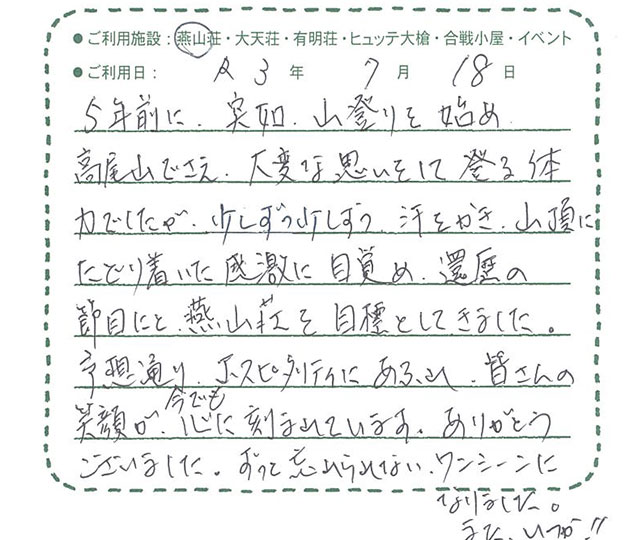 ●ご利用施設：燕山荘・大天荘・有明荘・ヒュッテ大槍・合戦小屋・イベント
●ご利用日： R3年 7月 18日
5年前に、突如、山登りを始め
高尾山でさえ、大変な思いをして登る体
力でしたが、少しずつ少しずつ、汗をかき、山頂に
たどり着いた感激に目覚め、還暦の
節目にと、燕山荘を目標としてきました。
予想通り、ホスピタリティにあふれ、皆さんの
笑顔が、今でも心に刻まれています。ありがとう
ございました。ずっと忘れられない、ワンシーンに
なりました。
また、いつか!!